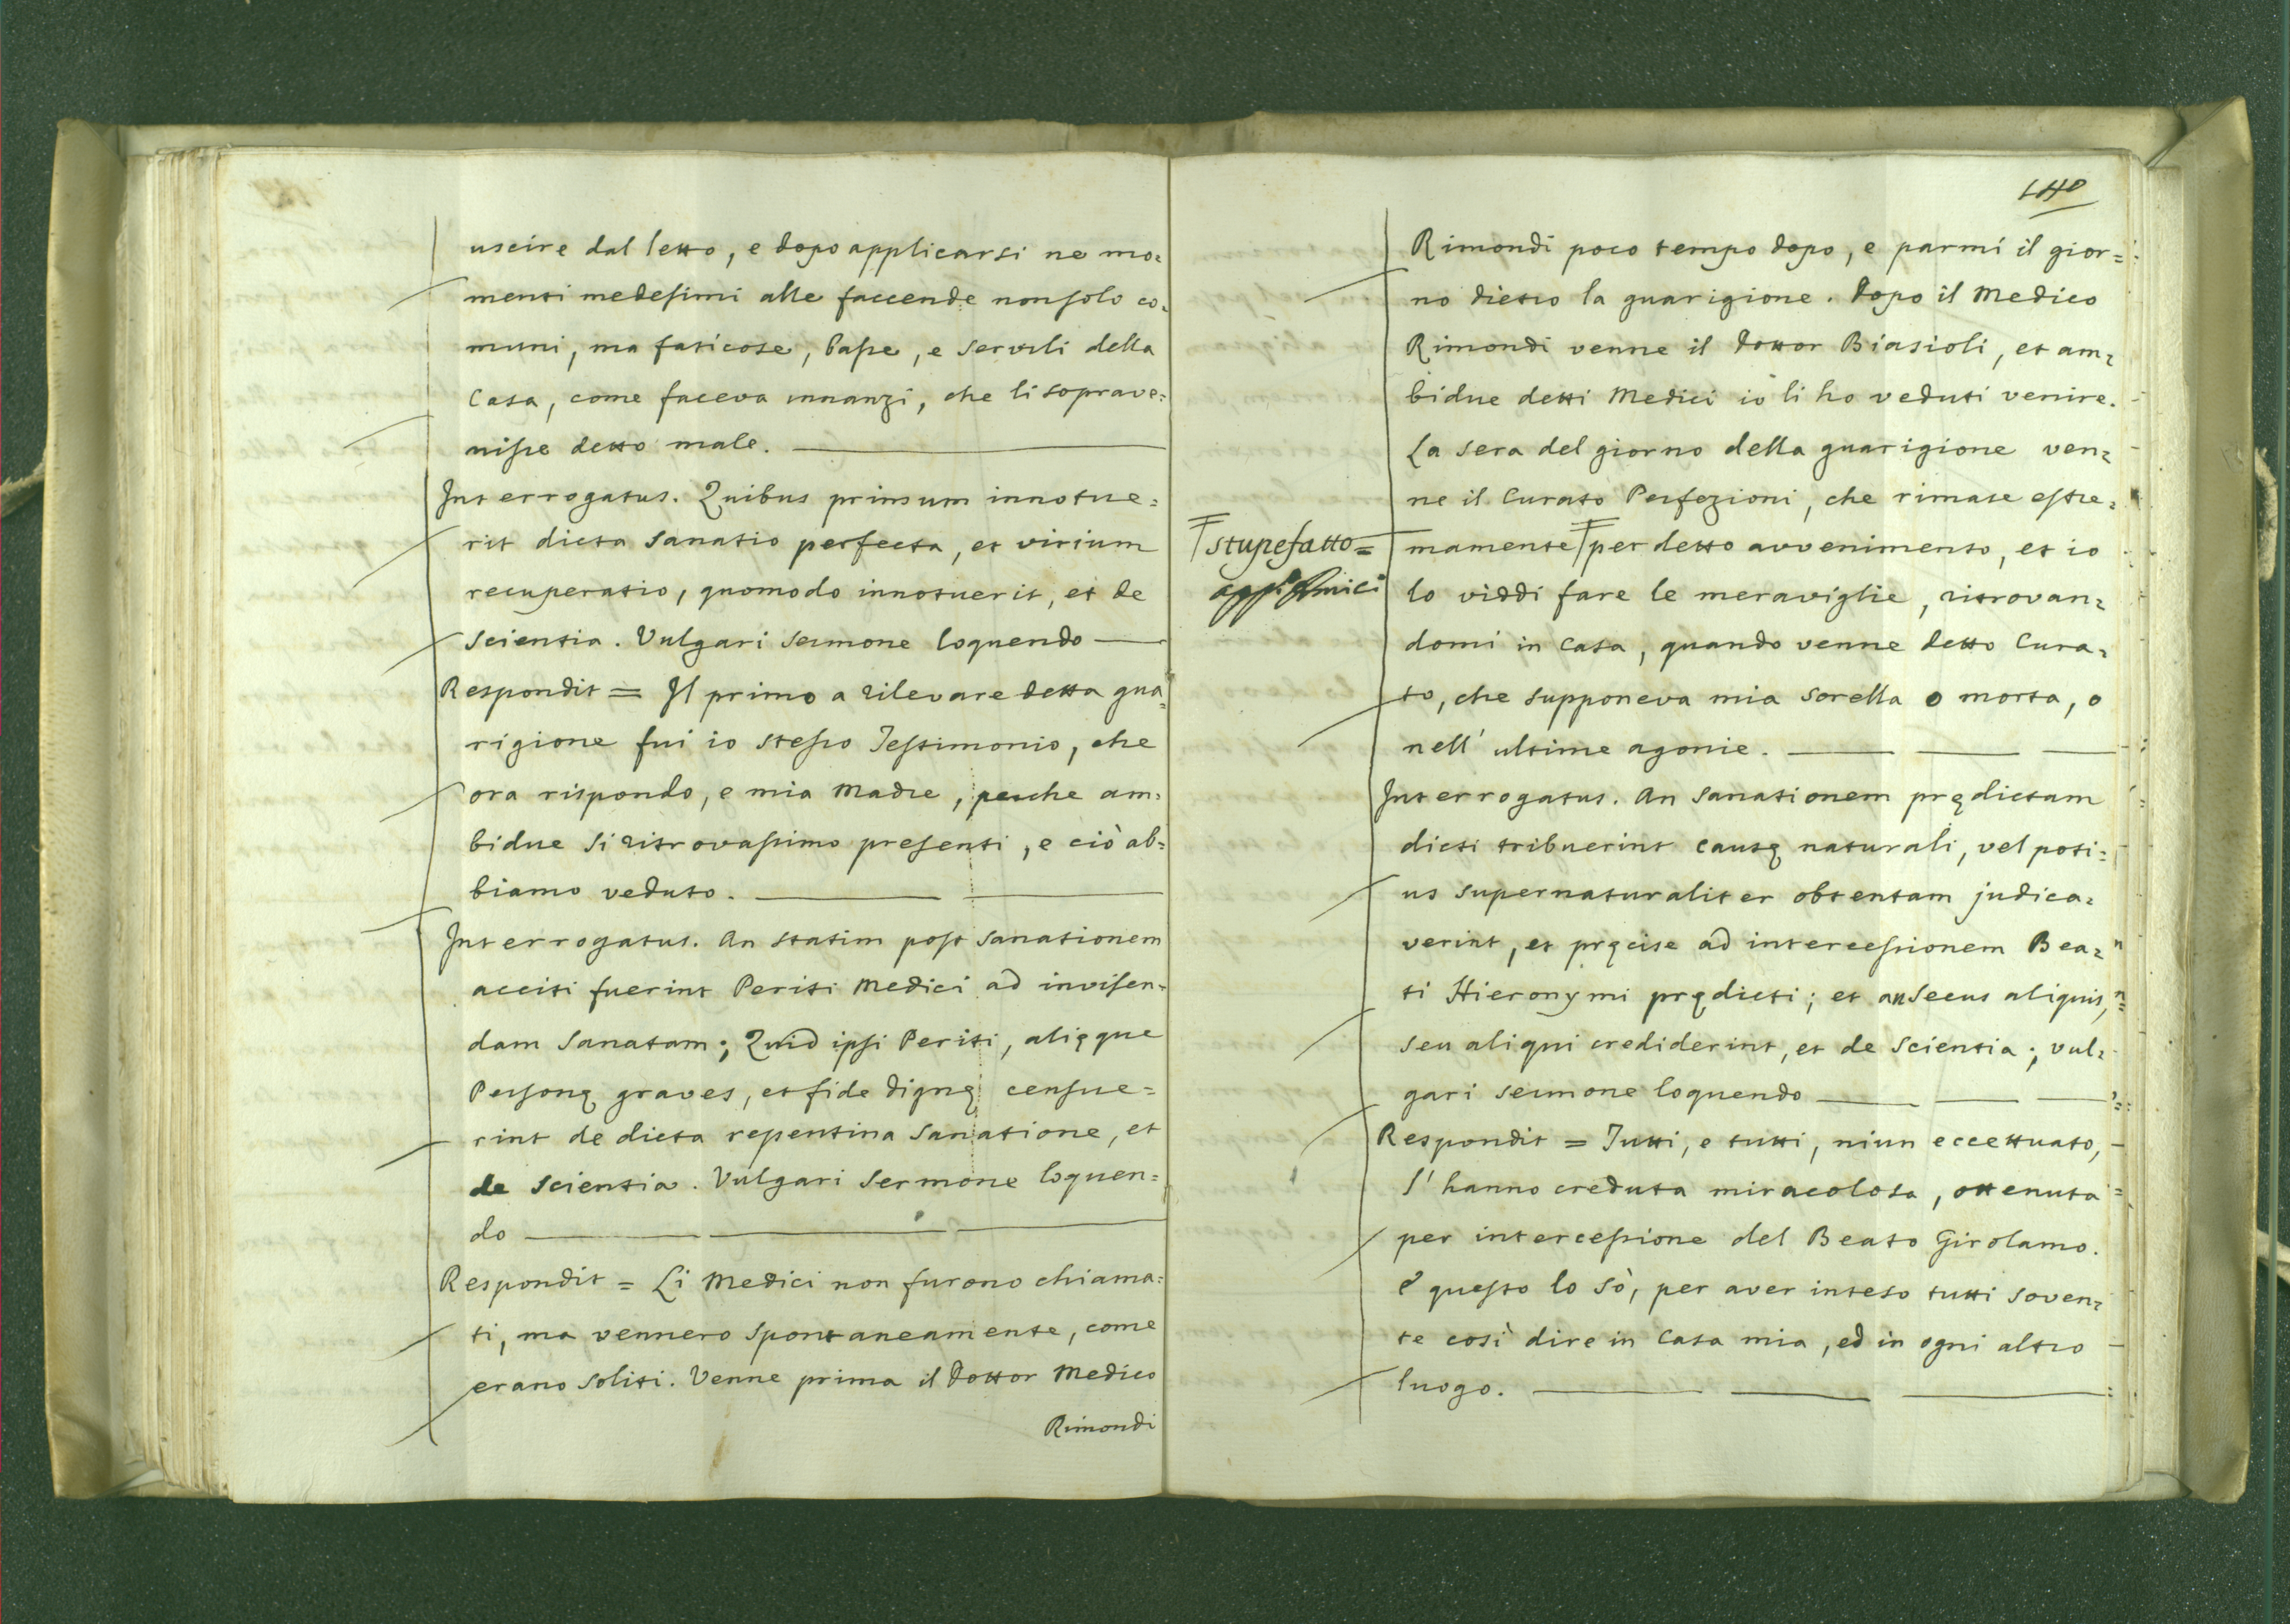 uscire dal letto, e dopo applicarsi ne mo=
menti medesimi alle faccende non solo co=
muni, ma faticose, basse, e servili della
Casa, come faceva innanzi, che li soprave=
nisse detto male.
Interrogatus. Quibus primum innotue=
rit dicta sanatio perfecta, et virium
recuperatio, quomodo innotuerit, et de
scientia. Vulgari sermone loquendo
Respondit = Il primo a rilevare detta gua=
rigione fui io stesso Testimonio, che
ora rispondo, e mia Madre, perche am=
bidue si ritrovassimo presenti, e ciò ab=
biamo veduto.
Interrogatus. An statim post sanationem
acciti fuerint Periti Medici ad invisen=
dam sanatam; Quid ipsi Periti, alięque
Personę graves, et fide dignę censue=
rint de dicta repentina sanatione, et
de scientia. Vulgari sermone loquen=
do
Respondit = Li Medici non furono chiama=
ti, ma vennero spontaneamente, come
erano soliti. Venne prima il Dottor Medico
Rimondi
140
Rimondi poco tempo dopo, e parmi il gior=
no dietro la guarigione. Dopo il Medico
Rimondi venne il Dottor Biasioli, et am=
bidue detti Medici io li ho veduti venire.
La sera del giorno della guarigione ven=
ne il Curato Perfezioni, che rimase estre=
stupefatto=
mamente per detto avvenimento, et io
lo viddi fare le meraviglie, ritrovan=
domi in Casa, quando venne detto Cura=
to, che supponeva mia sorella o morta, o
nell' ultime agonie.
Interrogatus. An sanationem prędictam
dicti tribuerint causę naturali, vel poti=
us supernaturaliter obtentam judica=
verint, et pręcise ad intercessionem Bea=
ti Hieronymi prędicti; et an secus aliquis,
seu aliqui crediderint, et de scientia; vul=
gari sermone loquendo
Respondit = Tutti, e tutti, niun eccettuato,
l' hanno creduta miracolosa, ottenuta
per intercessione del Beato Girolamo.
e questo lo sò, per aver inteso tutti soven=
te così dire in Casa mia, ed in ogni altro
luogo.